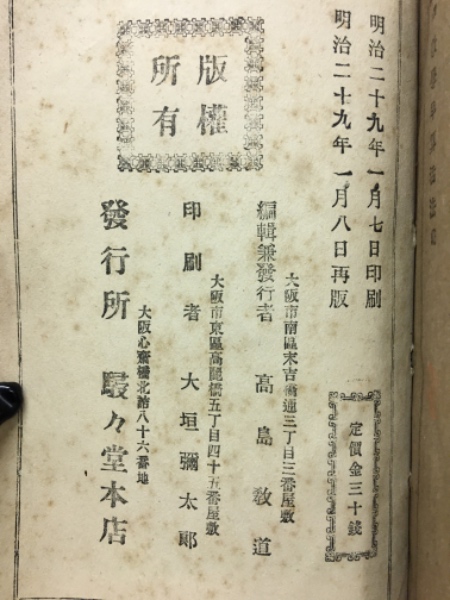 明治二十九年一月七日印刷
明治二十九年一月八日再版
定價金三十錢
版權
所有
大阪市南區末吉橋通三丁目三番屋敷
編輯兼發行者 高島敎道
大阪市東區高麗橋五丁目四十五番屋敷
印刷者 大垣彌太郞
大阪心齋橋北詰八十六番地
發行所 駸々堂本店